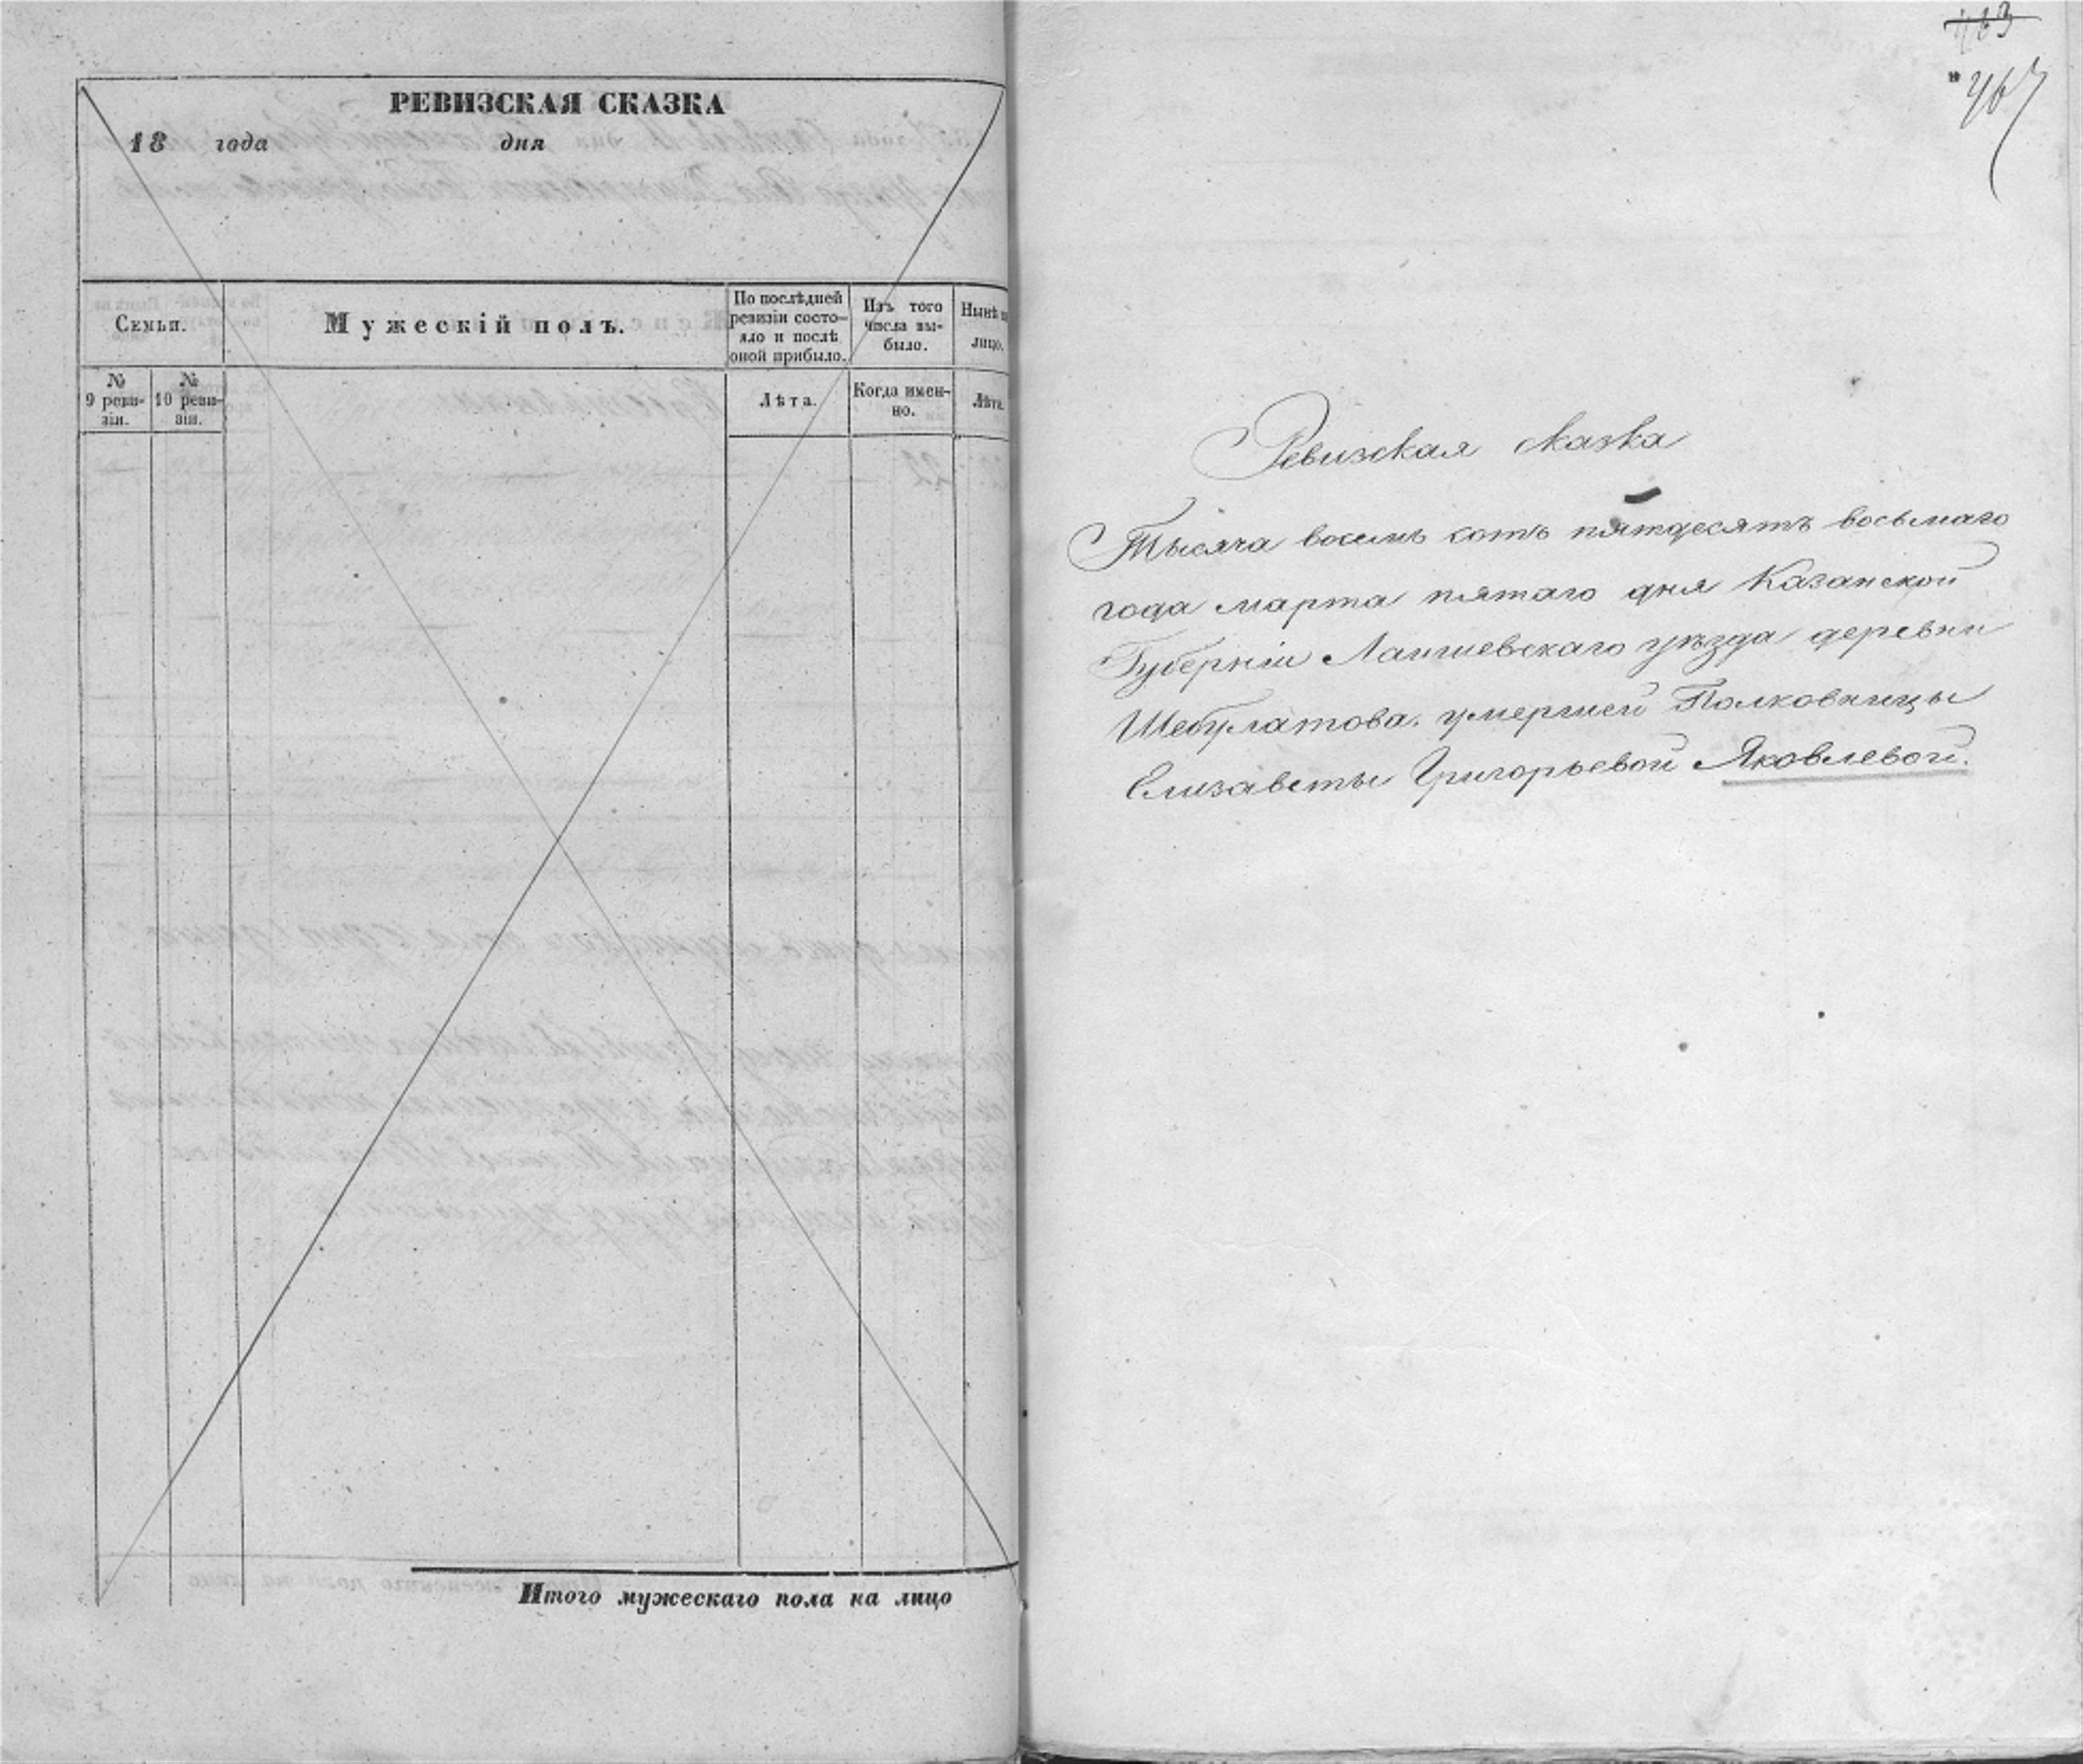 РЕВИЗСКАЯ СКАЗКА
18 года дня
Семьи.
Мужескій полъ.
По послѣдней ревизіи состо-
яло и послѣ
оной прибыло.
Изъ того
числа вы-
было.
Нынѣ
лицо.
№
9 реви-
зіи.
№
10 реви-
зіи.
Лѣта.
Когда имен-
но.
Лѣта.
Итого мужескаго пола на лицо
463
467
Ревизская сказка
Тысяча восемь сотъ пятдесятъ восьмаго
года марта пятаго дня Казанской
Губерніи Лаишевскаго уѣзда деревни
Шебулатова. умершей Полковницы
Елизаветы Григорьевой Яковлевой.